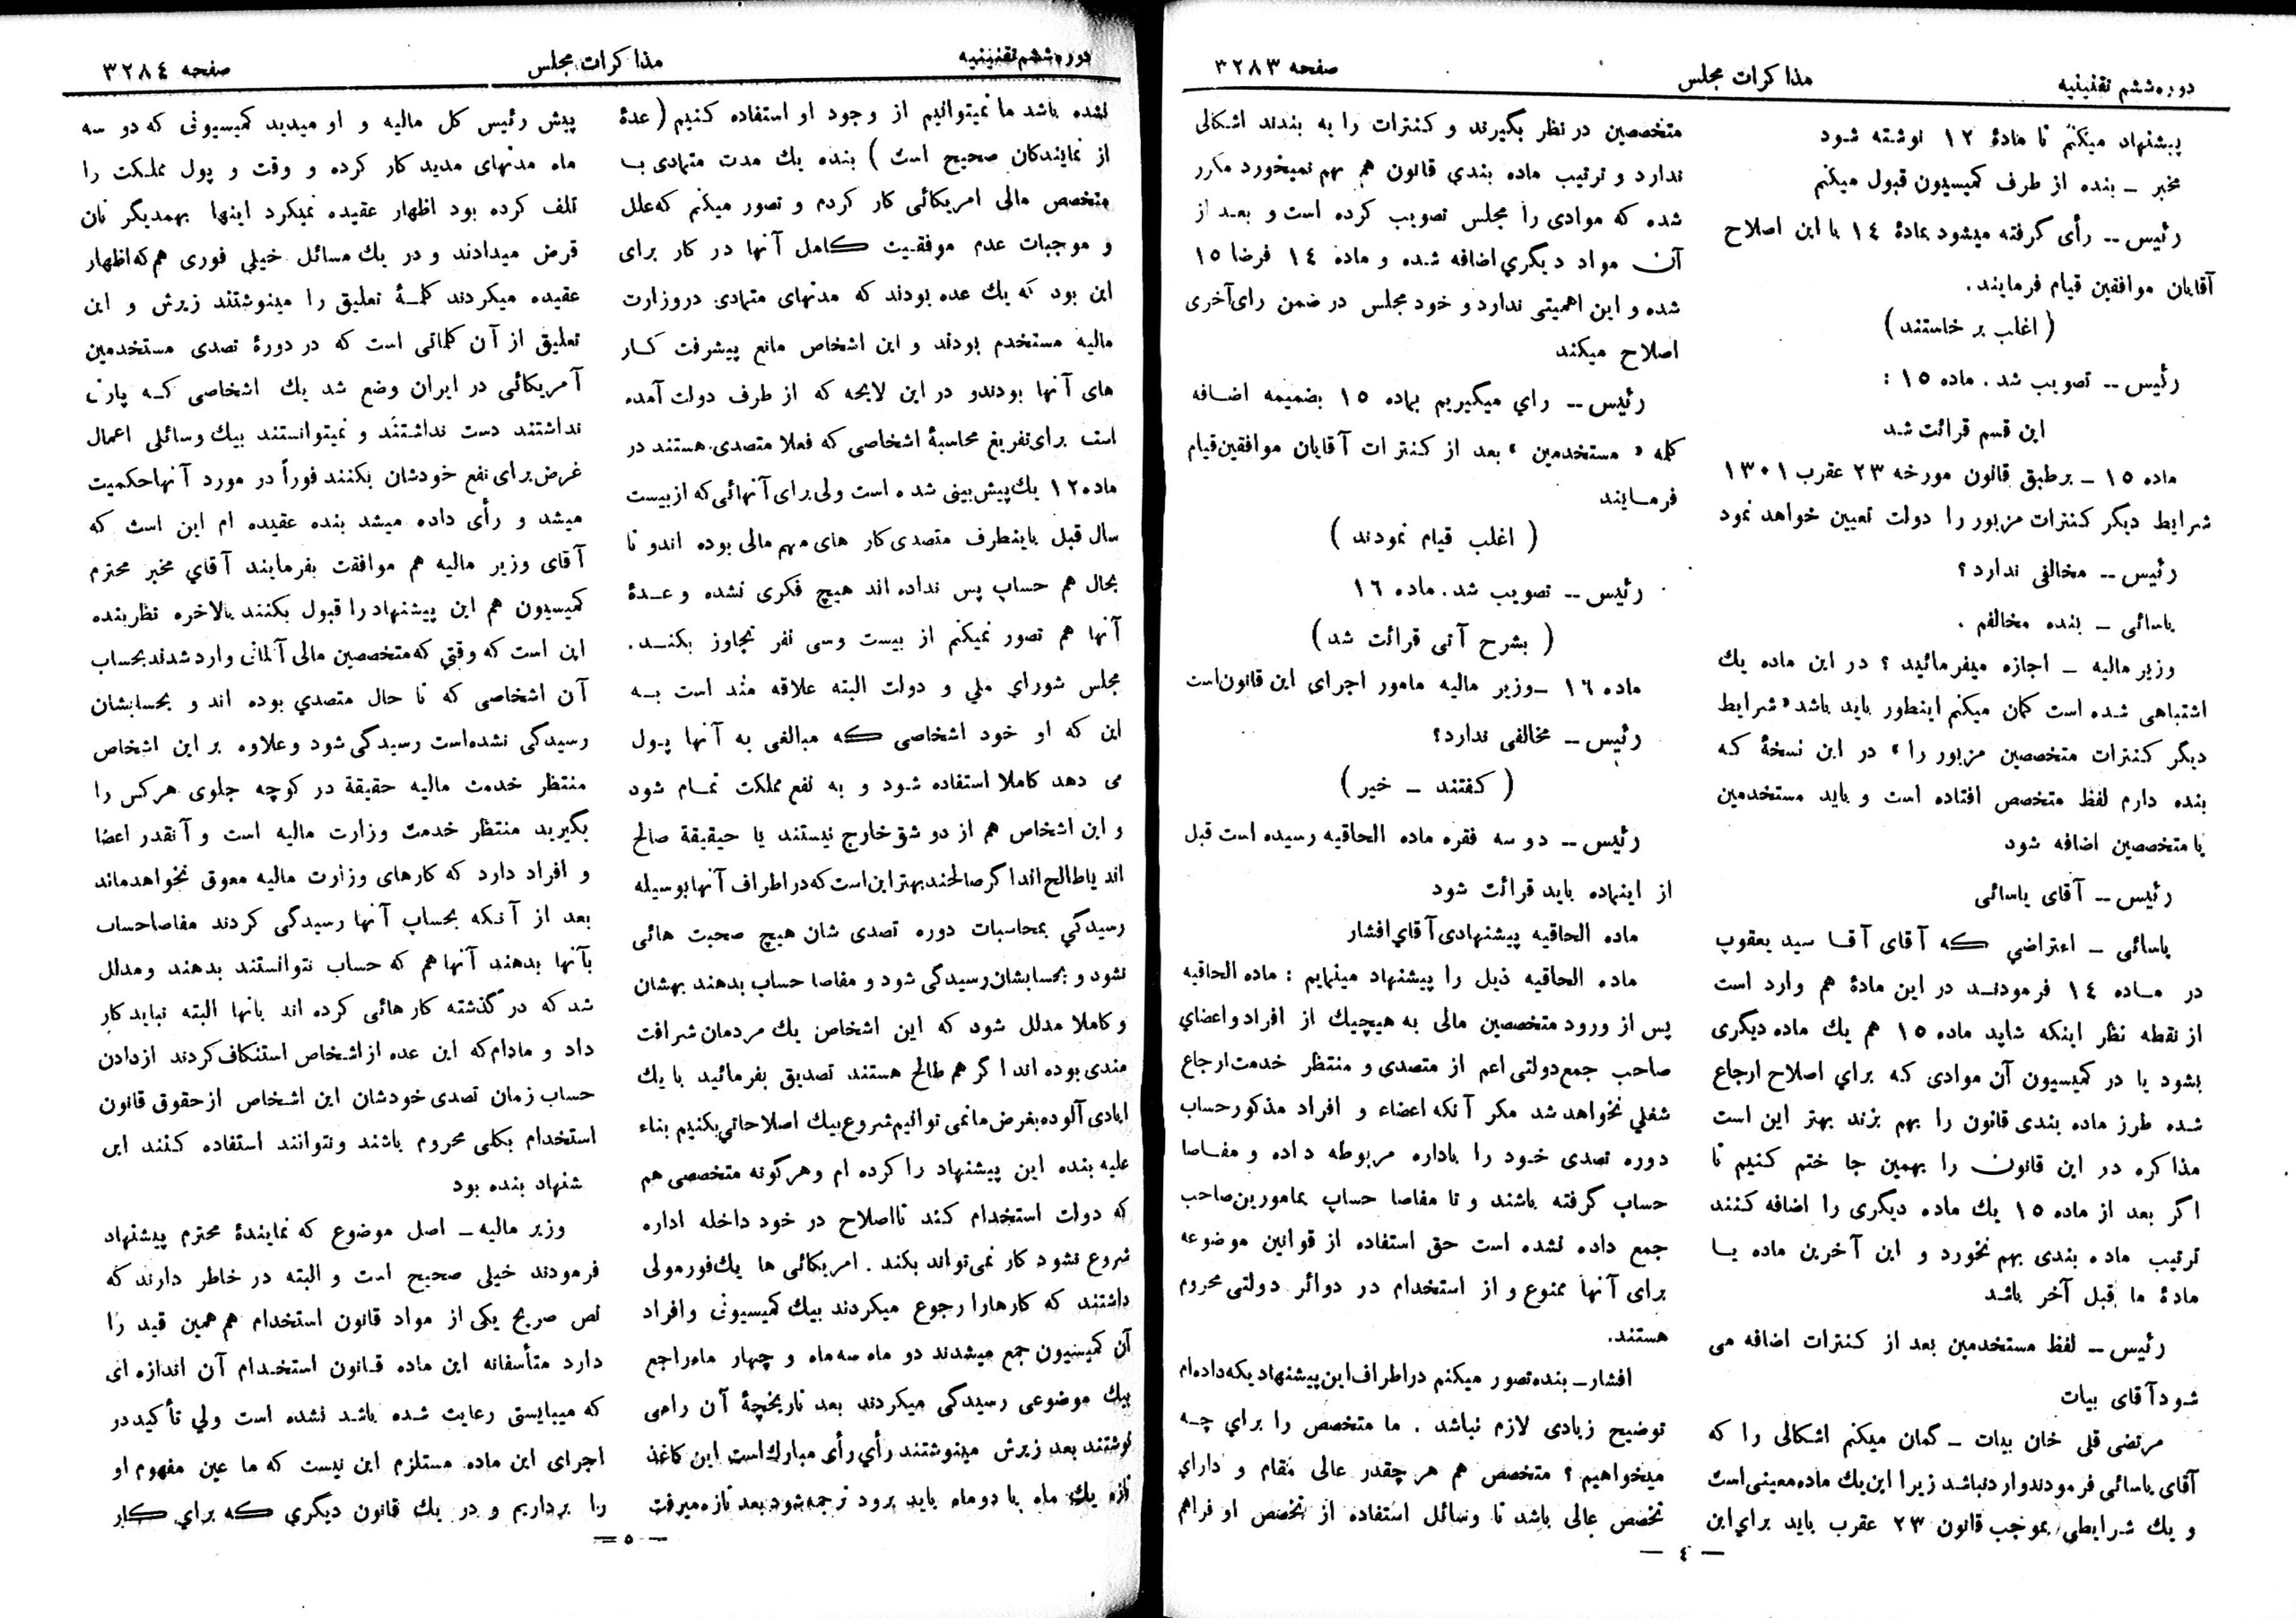 دوره ششم تقنینیه
مذاکرات مجلس
صفحه ۳۲۸۳
پیشنهاد میکنم تا مادهٔ ۱۲ نوشته شود
مخبر ـ بنده از طرف کمیسیون قبول میکنم
رئیس ـ رأی گرفته میشود بمادهٔ ۱٤ با این اصلاح
آقایان موافقین قیام فرمایند.
( اغلب بر خاستند )
رئیس ـ تصویب شد . ماده ۱٥ :
این قسم قرائت شد
ماده ۱٥ ـ برطبق قانون مورخه ۲۳ عقرب ۱۳۰۱
شرایط دیگر کنترات مزبور را دولت تعیین خواهد نمود
رئیس ـ مخالفی ندارد ؟
یاسائی ـ بنده مخالفم .
وزیر مالیه ـ اجازه میفرمائید ؟ در این ماده یك
اشتباهی شده است گمان میکنم اینطور باید باشد «شرایط
دیگر کنترات متخصصین مزبور را» در این نسخهٔ که
بنده دارم لفظ متخصص افتاده است و باید مستخدمین
یا متخصصین اضافه شود
رئیس ـ آقای یاسائی
یاسائی ـ اعتراضي که آقای آقا سید یعقوب
در ماده ۱٤ فرمودند در این مادهٔ هم وارد است
از نقطه نظر اینکه شاید ماده ۱٥ هم یك ماده دیگری
بشود یا در کمیسیون آن موادی که براي اصلاح ارجاع
شده طرز ماده بندی قانون را بهم بزند بهتر این است
مذاکره در این قانون را بهمین جا ختم کنیم تا
اگر بعد از ماده ۱٥ یك ماده دیگری را اضافه کنند
ترتیب ماده بندی بهم نخورد و این آخرین ماده یا
مادهٔ ما قبل آخر باشد
رئیس ـ لفظ مستخدمین بعد از کنترات اضافه می
شود آقای بیات
مرتضی قلی خان بیات ـ گمان میکنم اشکالی را که
آقای یاسائی فرمودند وارد نباشد زیرا این یك ماده معینی است
و یك شرایطی بموجب قانون ۲۳ عقرب باید براي این
متخصصین در نظر بگیرند و کنترات را به بندند اشکالی
ندارد و ترتیب ماده بندي قانون هم بهم نمیخورد مکرر
شده که موادی را مجلس تصویب کرده است و بعد از
آن مواد دیگري اضافه شده و ماده ۱٤ فرضا ۱٥
شده و این اهمیتی ندارد و خود مجلس در ضمن رای آخری
اصلاح میکند
رئیس ـ راي میگیریم بماده ۱٥ بضمیمه اضافه
کلمه « مستخدمین » بعد از کنترات آقایان موافقین قیام
فرمایند
( اغلب قیام نمودند )
رئیس ـ تصویب شد . ماده ۱٦
( بشرح آتی قرائت شد )
ماده ۱٦ ـ وزیر مالیه مامور اجرای این قانون است
رئیس ـ مخالفی ندارد؟
( گفتند ـ خیر )
رئیس ـ دو سه فقره ماده الحاقیه رسیده است قبل
از اینماده باید قرائت شود
ماده الحاقیه پیشنهادی آقاي افشار
ماده الحاقیه ذیل را پیشنهاد مینمایم : ماده الحاقیه
پس از ورود متخصصین مالی به هیچیك از افراد و اعضاي
صاحب جمع دولتی اعم از متصدی و منتظر خدمت ارجاع
شغلي نخواهد شد مکر آنکه اعضاء و افراد مذکور حساب
دوره تصدی خود را باداره مربوطه داده و مفاصا
حساب گرفته باشند و تا مفاصا حساب بمامورین صاحب
جمع داده نشده است حق استفاده از قوانین موضوعه
برای آنها ممنوع و از استخدام در دوائر دولتی محروم
هستند.
افشار ـ بنده تصور میکنم در اطراف این پیشنهاد یکه داده ام
توضیح زیادی لازم نباشد . ما متخصص را براي چه
میخواهیم ؟ متخصص هم هر چقدر عالی مقام و داراي
تخصص عالی باشد تا وسائل استفاده از تخصص او فراهم
— ٤ —
دوره ششم تقنینیه
مذاکرات مجلس
صفحه ۳۲۸٤
نشده باشد ما نمیتوالیم از وجود او استفاده کنیم ( عدهٔ
از نمایندکان صحیح است ) بنده یك مدت متمادی با
متخصص مالی امریکائی کار کردم و تصور میکنم که علل
و موجبات عدم موفقیت کامل آنها در کار برای
این بود که یك عده بودند که مدتهای متمادی دروزارت
مالیه مستخدم بودند و این اشخاص مانع پیشرفت کار
های آنها بودندو در این لایحه که از طرف دولت آمده
است برای تفریغ محاسبهٔ اشخاصی که فعلا متصدی هستند در
ماده ۱۲ یك پیش بینی شده است ولی برای آنهائی که از بیست
سال قبل باینطرف متصدی کار های مهم مالی بوده اندو تا
بحال هم حساب پس نداده اند هیچ فکری نشده و عدهٔ
آنها هم تصور نمیکنم از بیست وسی نفر تجاوز بکند.
مجلس شوراي ملي و دولت البته علاقه مند است به
این که او خود اشخاصی که مبالغی به آنها پول
می دهد کاملا استفاده شود و به نفع مملکت تمام شود
و این اشخاص هم از دو شق خارج نیستند یا حقیقة صالح
اند یا طالح اند اگر صالحند بهتر این است که در اطراف آنها بوسیله
رسیدگي بمحاسبات دوره تصدی شان هیچ صحبت هائی
نشود و بحسابشان رسیدگی شود و مفاصا حساب بدهند بهشان
و کاملا مدلل شود که این اشخاص یك مردمان شرافت
مندی بوده اند اگر هم طالح هستند تصدیق بفرمائید با یك
ایادی آلوده بغرض ما نمی توانیم شروع بیك اصلاحاتي بکنیم بناء
علیه بنده این پیشنهاد را کرده ام و هر گونه متخصصی هم
که دولت استخدام کند تا اصلاح در خود داخله اداره
شروع نشود کار نمی تواند بکند . امریکائی ها یك فورمولی
داشتند که کارها را رجوع میکردند بیك کمیسیونی و افراد
آن کمیسیون جمع میشدند دو ماه سه ماه و چهار ماه راجع
بیك موضوعی رسیدگی میکردند بعد تاریخچهٔ آن را می
نوشتند بعد زیرش مینوشتند رأي رأی مبارك است این کاغذ
تازه یك ماه یا دو ماه باید برود ترجمه شود بعد تازه میرفت
پیش رئیس کل مالیه و او میدید کمیسیونی که دو سه
ماه مدتهای مدید کار کرده و وقت و پول مملکت را
تلف کرده بود اظهار عقیده نمیکرد اینها بهمدیگر نان
قرض میدادند و در یك مسائل خیلي فوری هم که اظهار
عقیده میکردند کلمهٔ تعلیق را مینوشتند زیرش و این
تعلیق از آن کلماتی است که در دورهٔ تصدی مستخدمین
آمریکائی در ایران وضع شد یك اشخاصی که پارتی
نداشتند دست نداشتند و نمیتوانستند بیك وسائلی اعمال
غرض برای نفع خودشان بکنند فوراً در مورد آنها حکمیت
میشد و رأی داده میشد بنده عقیده ام این است که
آقای وزیر مالیه هم موافقت بفرمایند آقاي مخبر محترم
کمیسیون هم این پیشنهاد را قبول بکنند بالاخره نظر بنده
این است که وقتي که متخصصین مالی آلمانی وارد شدند بحساب
آن اشخاصی که تا حال متصدي بوده اند و بحسابشان
رسیدگی نشده است رسیدگی شود و علاوه بر این اشخاص
منتظر خدمت مالیه حقیقة در کوچه جلوی هرکس را
بگیرید منتظر خدمت وزارت مالیه است و آنقدر اعضا
و افراد دارد که کارهای وزارت مالیه معوق نخواهد ماند
بعد از آنکه بحساب آنها رسیدگی کردند مفاصا حساب
بآنها بدهند آنها هم که حساب نتوانستند بدهند و مدلل
شد که در گذشته کار هائی کرده اند بانها البته نباید کار
داد و مادام که این عده از اشخاص استنکاف کردند از دادن
حساب زمان تصدی خودشان این اشخاص از حقوق قانون
استخدام بکلی محروم باشند و نتوانند استفاده کنند این
شنهاد بنده بود
وزیر مالیه ـ اصل موضوع که نمایندهٔ محترم پیشنهاد
فرمودند خیلی صحیح است و البته در خاطر دارند که
نص صریح یکی از مواد قانون استخدام هم همین قید را
دارد متأسفانه این ماده قانون استخدام آن اندازه ای
که میبایستی رعایت شده باشد نشده است ولي تأکید در
اجرای این ماده مستلزم این نیست که ما عین مفهوم او
را برداریم و در یك قانون دیگري که براي کار
— ٥ —